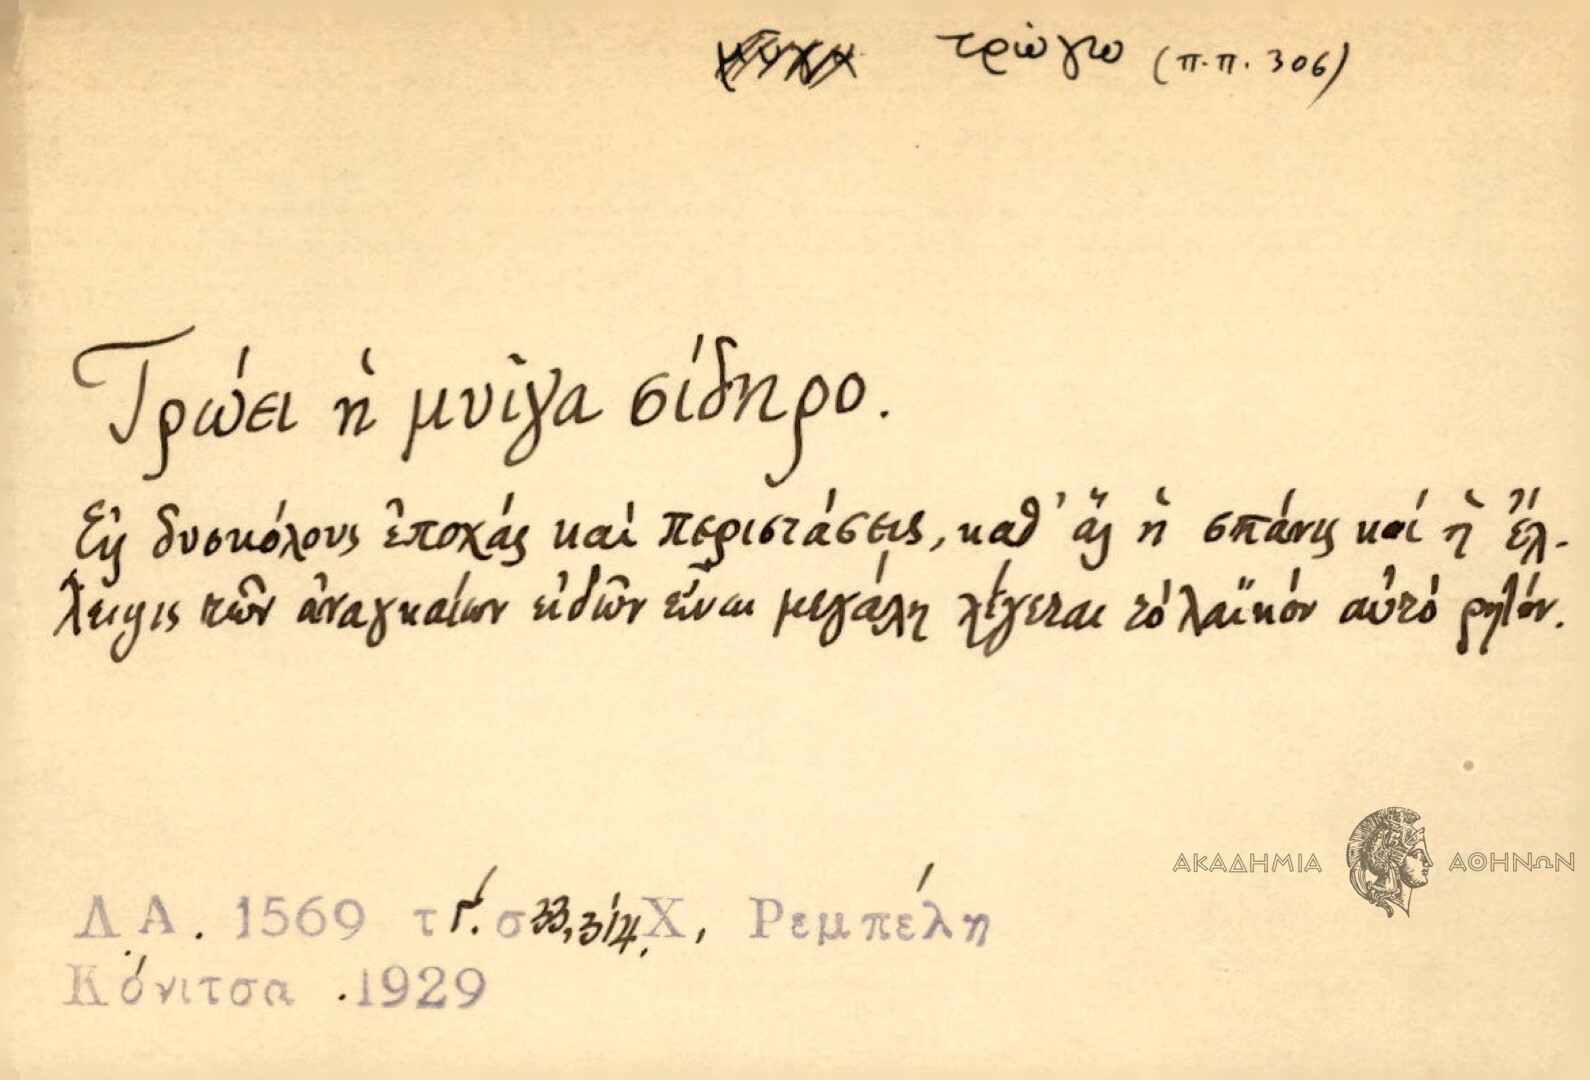 τρώγω (π.π. 306)
Τρώει ἡ μυῖγα σίδηρο.
Εἰς δυσκόλους ἐποχάς καί περιστάσεις, καθ' ἅς ἡ σπάνις καί ἡ ἔλ-
λειψις τῶν ἀναγκαίων εἰδῶν εἶναι μεγάλη λέγεται τό λαϊκόν αὐτό ρητόν.
ΑΚΑΔΗΜΙΑ ΑΘΗΝΩΝ
Λ.Α. 1569 τ Γ'. σ 33, Χ, Ρεμπέλη
Κόνιτσα .1929